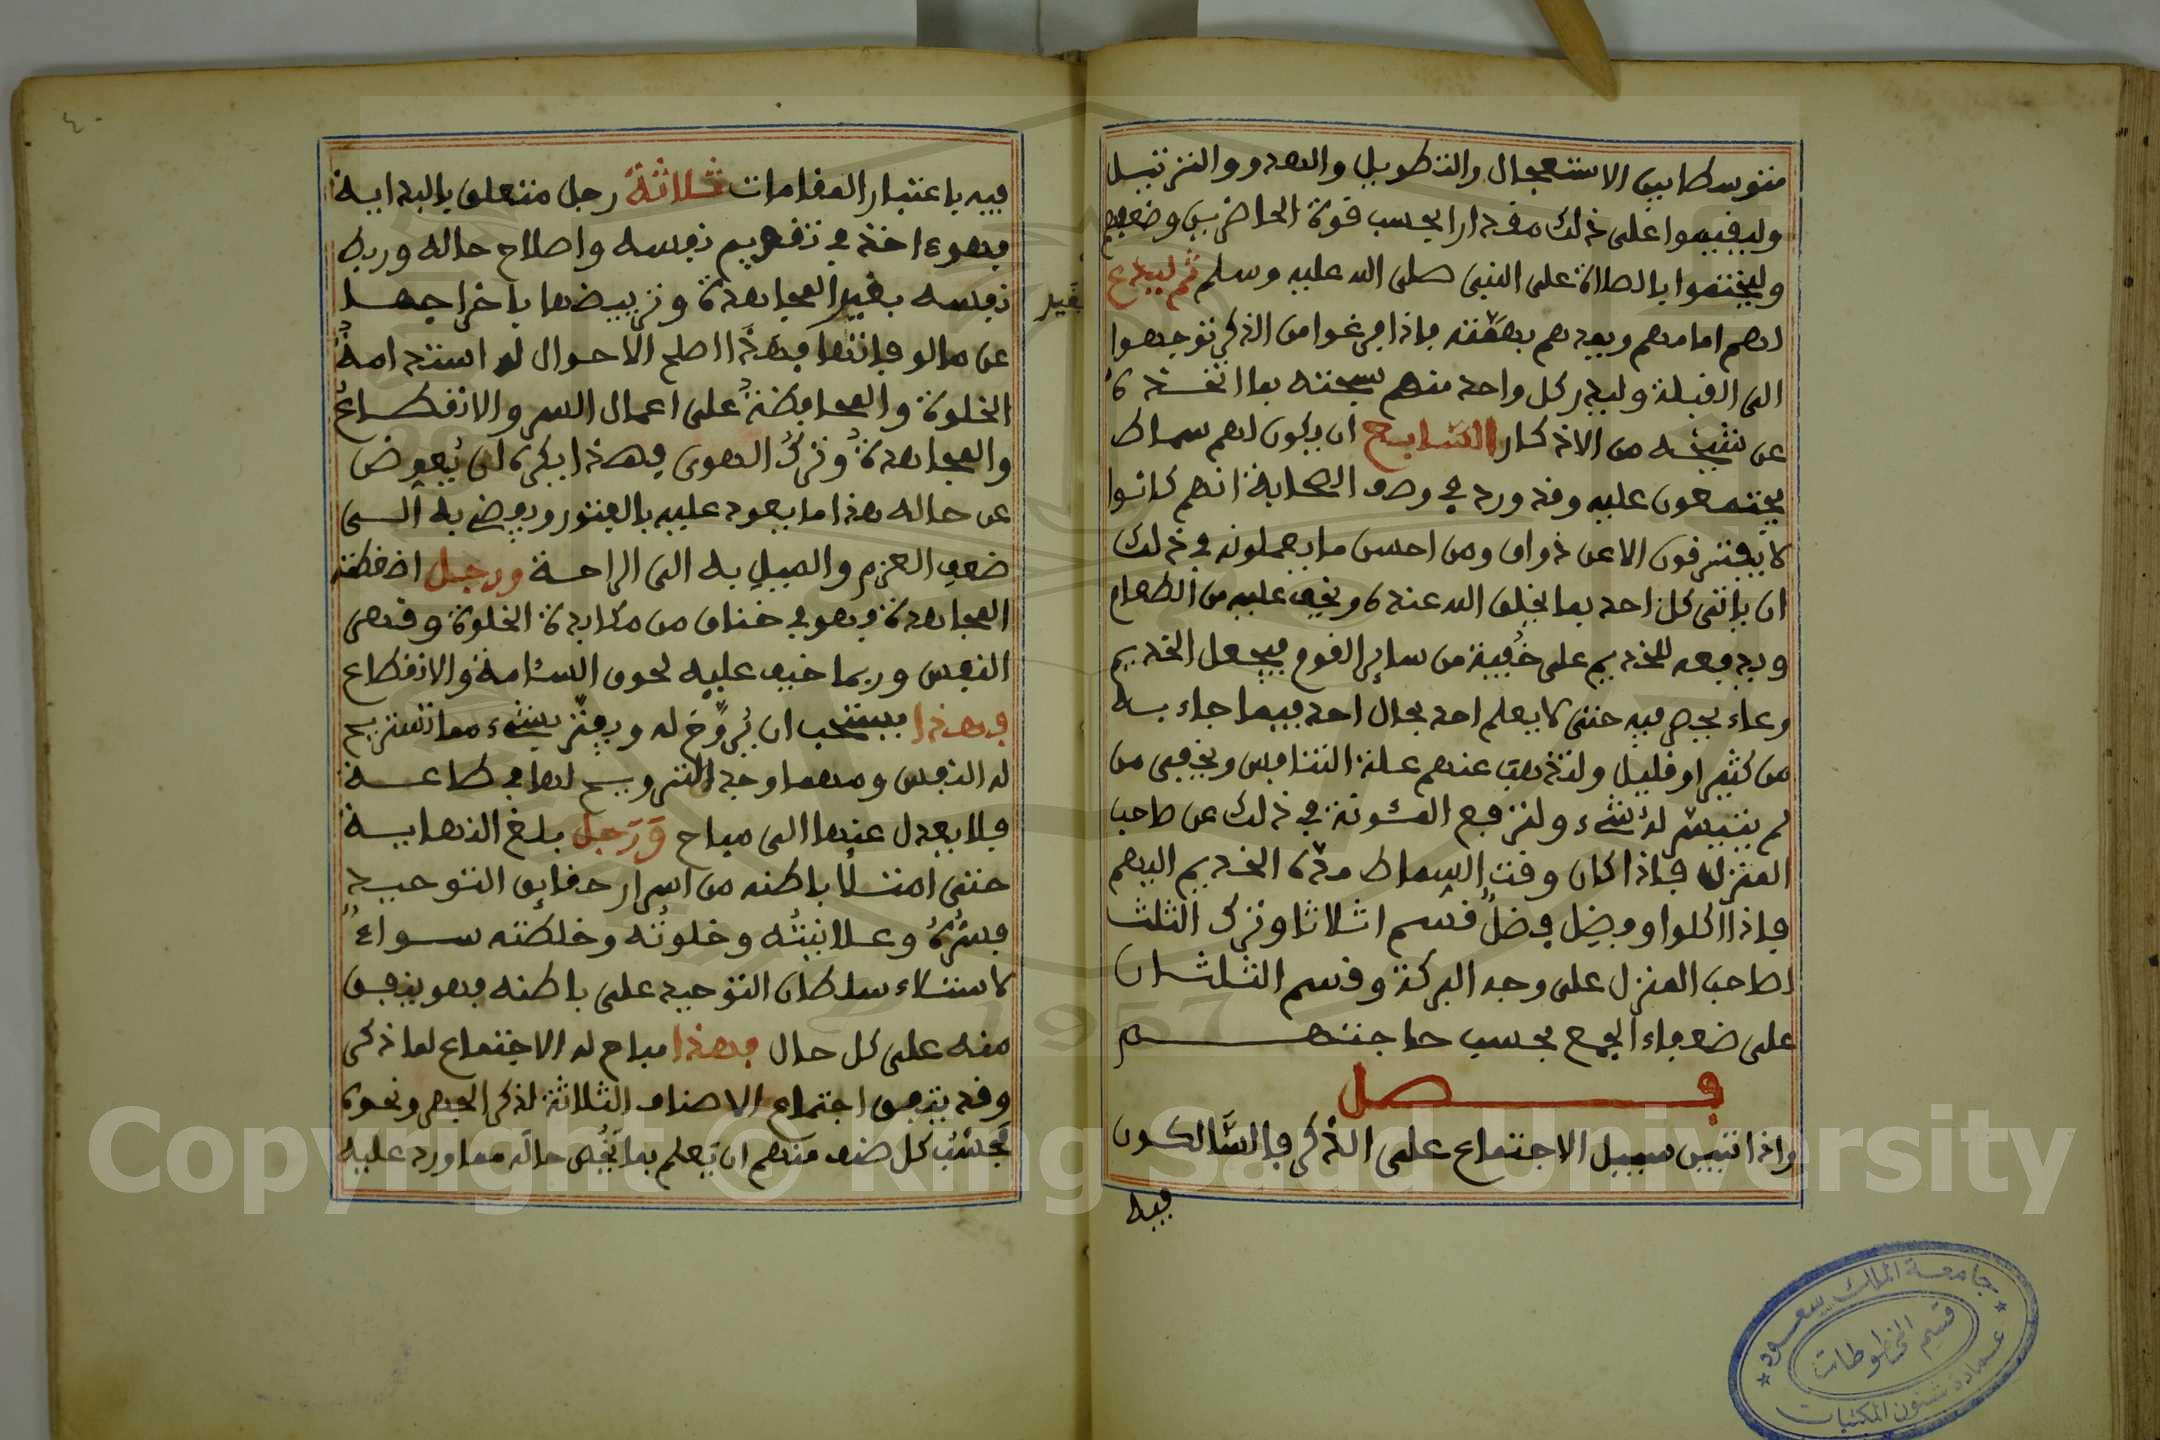 متوسطا بين الاستعجال والتطويل والهدو والترتيل
وليقيموا على ذلك مقدارا بحسب قوة الحاضرين وضعفهم
وليختموا بالصلاة على النبي صلى الله عليه وسلم ثم ليدع
لهم امامهم ويمدهم بهمّته فاذا فرغوا من الذكر توجهوا
الى القبلة وليدر كل واحد منهم سبحته بما اتخذه
عن شيخه من الاذكار السابع ان يكون لهم سماط
يجتمعون عليه وقد ورد في وصف الصحابة انهم كانوا
لا يفترقون الا عن ذواق ومن احسن ما يعملونه في ذلك
ان ياتي كل احد بما يخلق الله عنده ويخف عليه من الطعام
ويدفعه للخديم على خُفية من ساير القوم فيجعل الخديم
وعاء يجمع فيه حتى لا يعلم احد بحال احد فيما جاء به
من كثير او قليل ولتذهب عنهم علة التنافس ويخفى من
لم يتيسّر له شيء ولترفع المئونة في ذلك عن صاحب
المنزل فاذا كان وقت السماط مدّه الخديم اليهم
فاذا اكلوا وفضل فضلٌ قسم اثلاثا وترك الثلث
لصاحب المنزل على وجه البركة وقسم الثلثان
على ضعفاء الجمع بحسب حاجتهم
فصل
واذا تبين سبيل الاجتماع على الذّكر فالسّالكون
فيه
٤٠
فيه باعتبار المقامات ثلاثة رجل متعلق بالبداية
فهو ءاخذ في تقويم نفسه واصلاح حاله وربط
نفسه بقيد المجاهدة وتربيضها باخراجها
عن مالوفاتها فهذا اصلح الاحوال له استدامةُ
الخلوة والمحافظةُ على اعمال السر والانقطاعُ
والمجاهدةُ وتركُ الهوى فهذا يكره ان يُعوض
عن حاله هذا ما يعود عليه بالفتور ويفضي به الى
ضعف العزم والميل به الى الراحة ورجل اضغطته
المجاهدة فهو في خناق من مكابدة الخلوة وقهر
النفس وربما خيف عليه لحوق السئامة والانقطاع
فهذا يستحب ان يُروَّح له ويفتّر بشيء مما تستريح
له النفس ومهما وجد الترويح لها في طاعة
فلا يعدل عنها الى مباح وَرَجل بلغ النهاية
حتى امتلأ باطنه من اسرار حقايق التوحيد
فسرُّه وعلانيتُه وخلوتُه وخلطته سواءٌ
لاستيلاء سلطان التوحيد على باطنه فهو ينفق
منه على كل حال فهذا مباح له الاجتماع لما ذكر
وقد يتفق اجتماع الاصناف الثلاثة لذكر الجهر ونحوه
فحسْبُ كل صنف منهم ان يَعلم بما يَخُص حالَه مما ورد عليه
بقيد
جامعة الملك سعود
قسم المخطوطات
عمادة شئون المكتبات
1957
Copyright © King Saud University